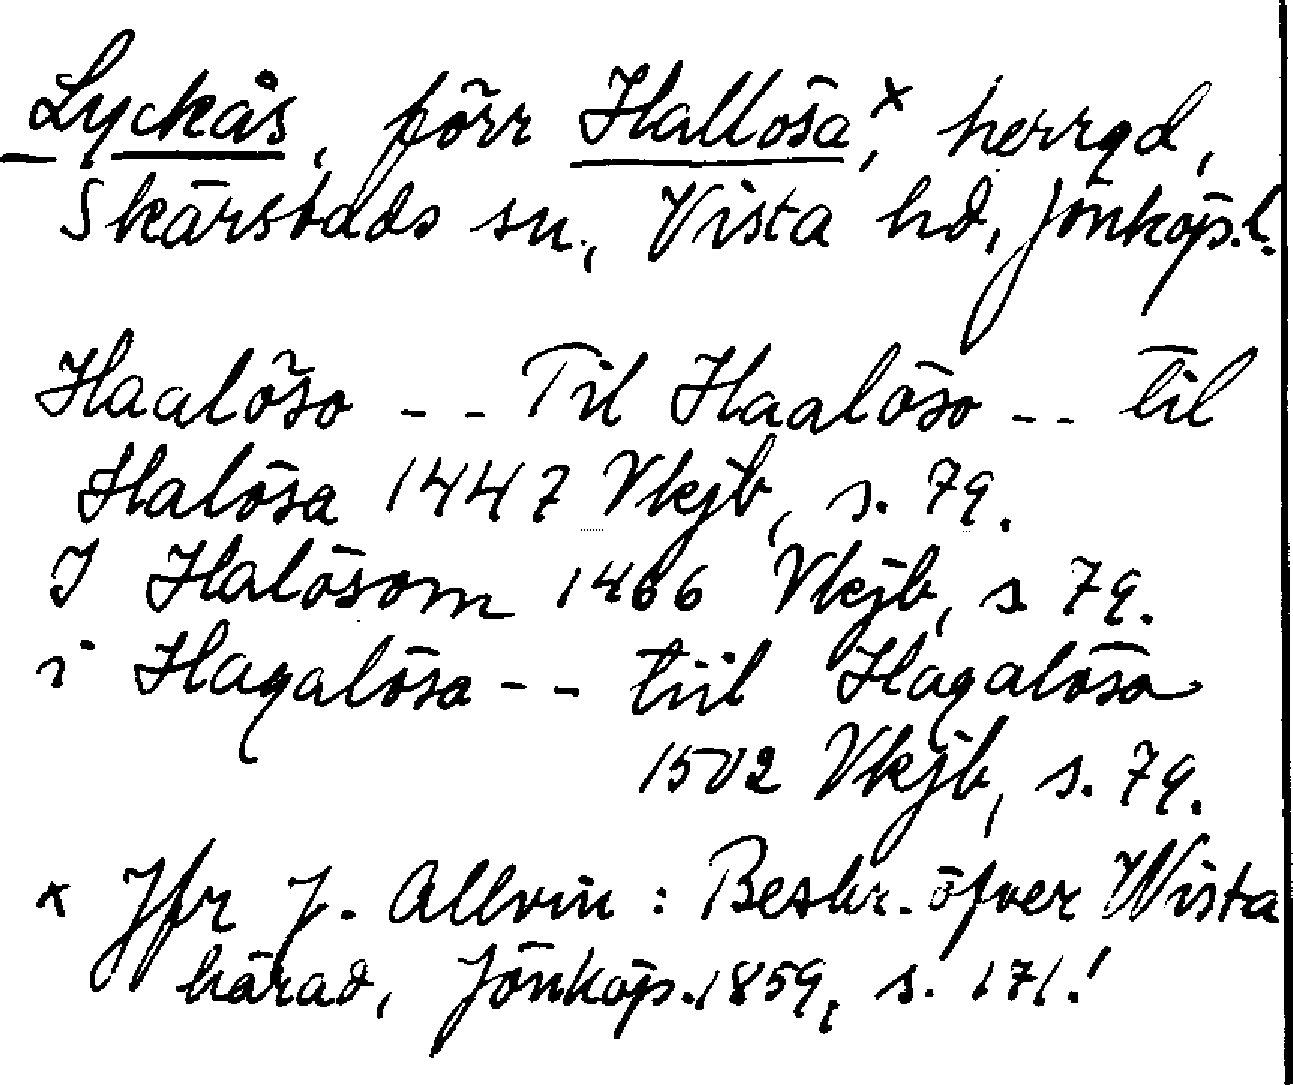 Lyckås, förr Hallösa,× herrgd,
Skärstads sn., Vista hd, Jönköp.l.
Haalöso -- Til Haalöso -- til
Halösa 1447 Vkjb, s. 79.
I Halösom 1466 Vkjb, s. 79.
i Hagalösa -- tiil Hagalösa
1502 Vkjb, s. 79.
× Jfr J. Allvin: Beskr. öfver Wista
härad, Jönköp. 1859, s. 171.!